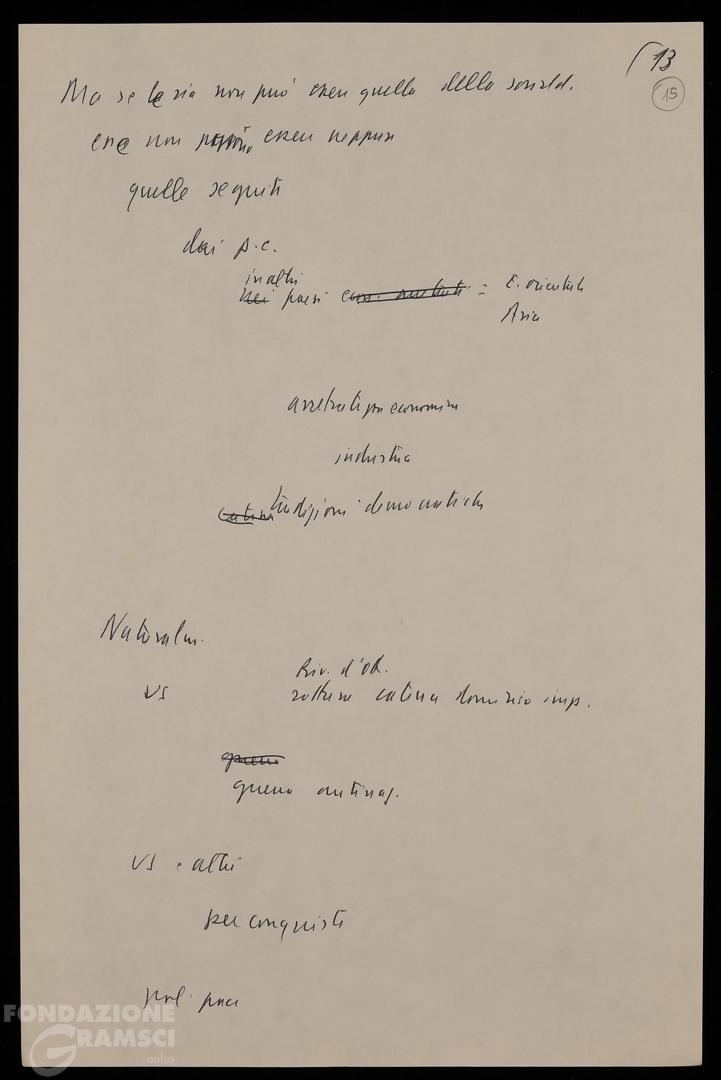 13
15
Ma se la via non può essere quella della socialд.
essa non può essere neppure
quelle seguite
dai p.c.
in altri
nei paesi = E. orientale
Asia
arretrati per economia
industria
tradizioni democratiche
Naturalm.
Riv. d'Ott.
US rottura catena dominio imp.
guerra
guerra antinaz.
US e altri
per conquista
pol. pace
FONDAZIONE
GRAMSCI
onlus